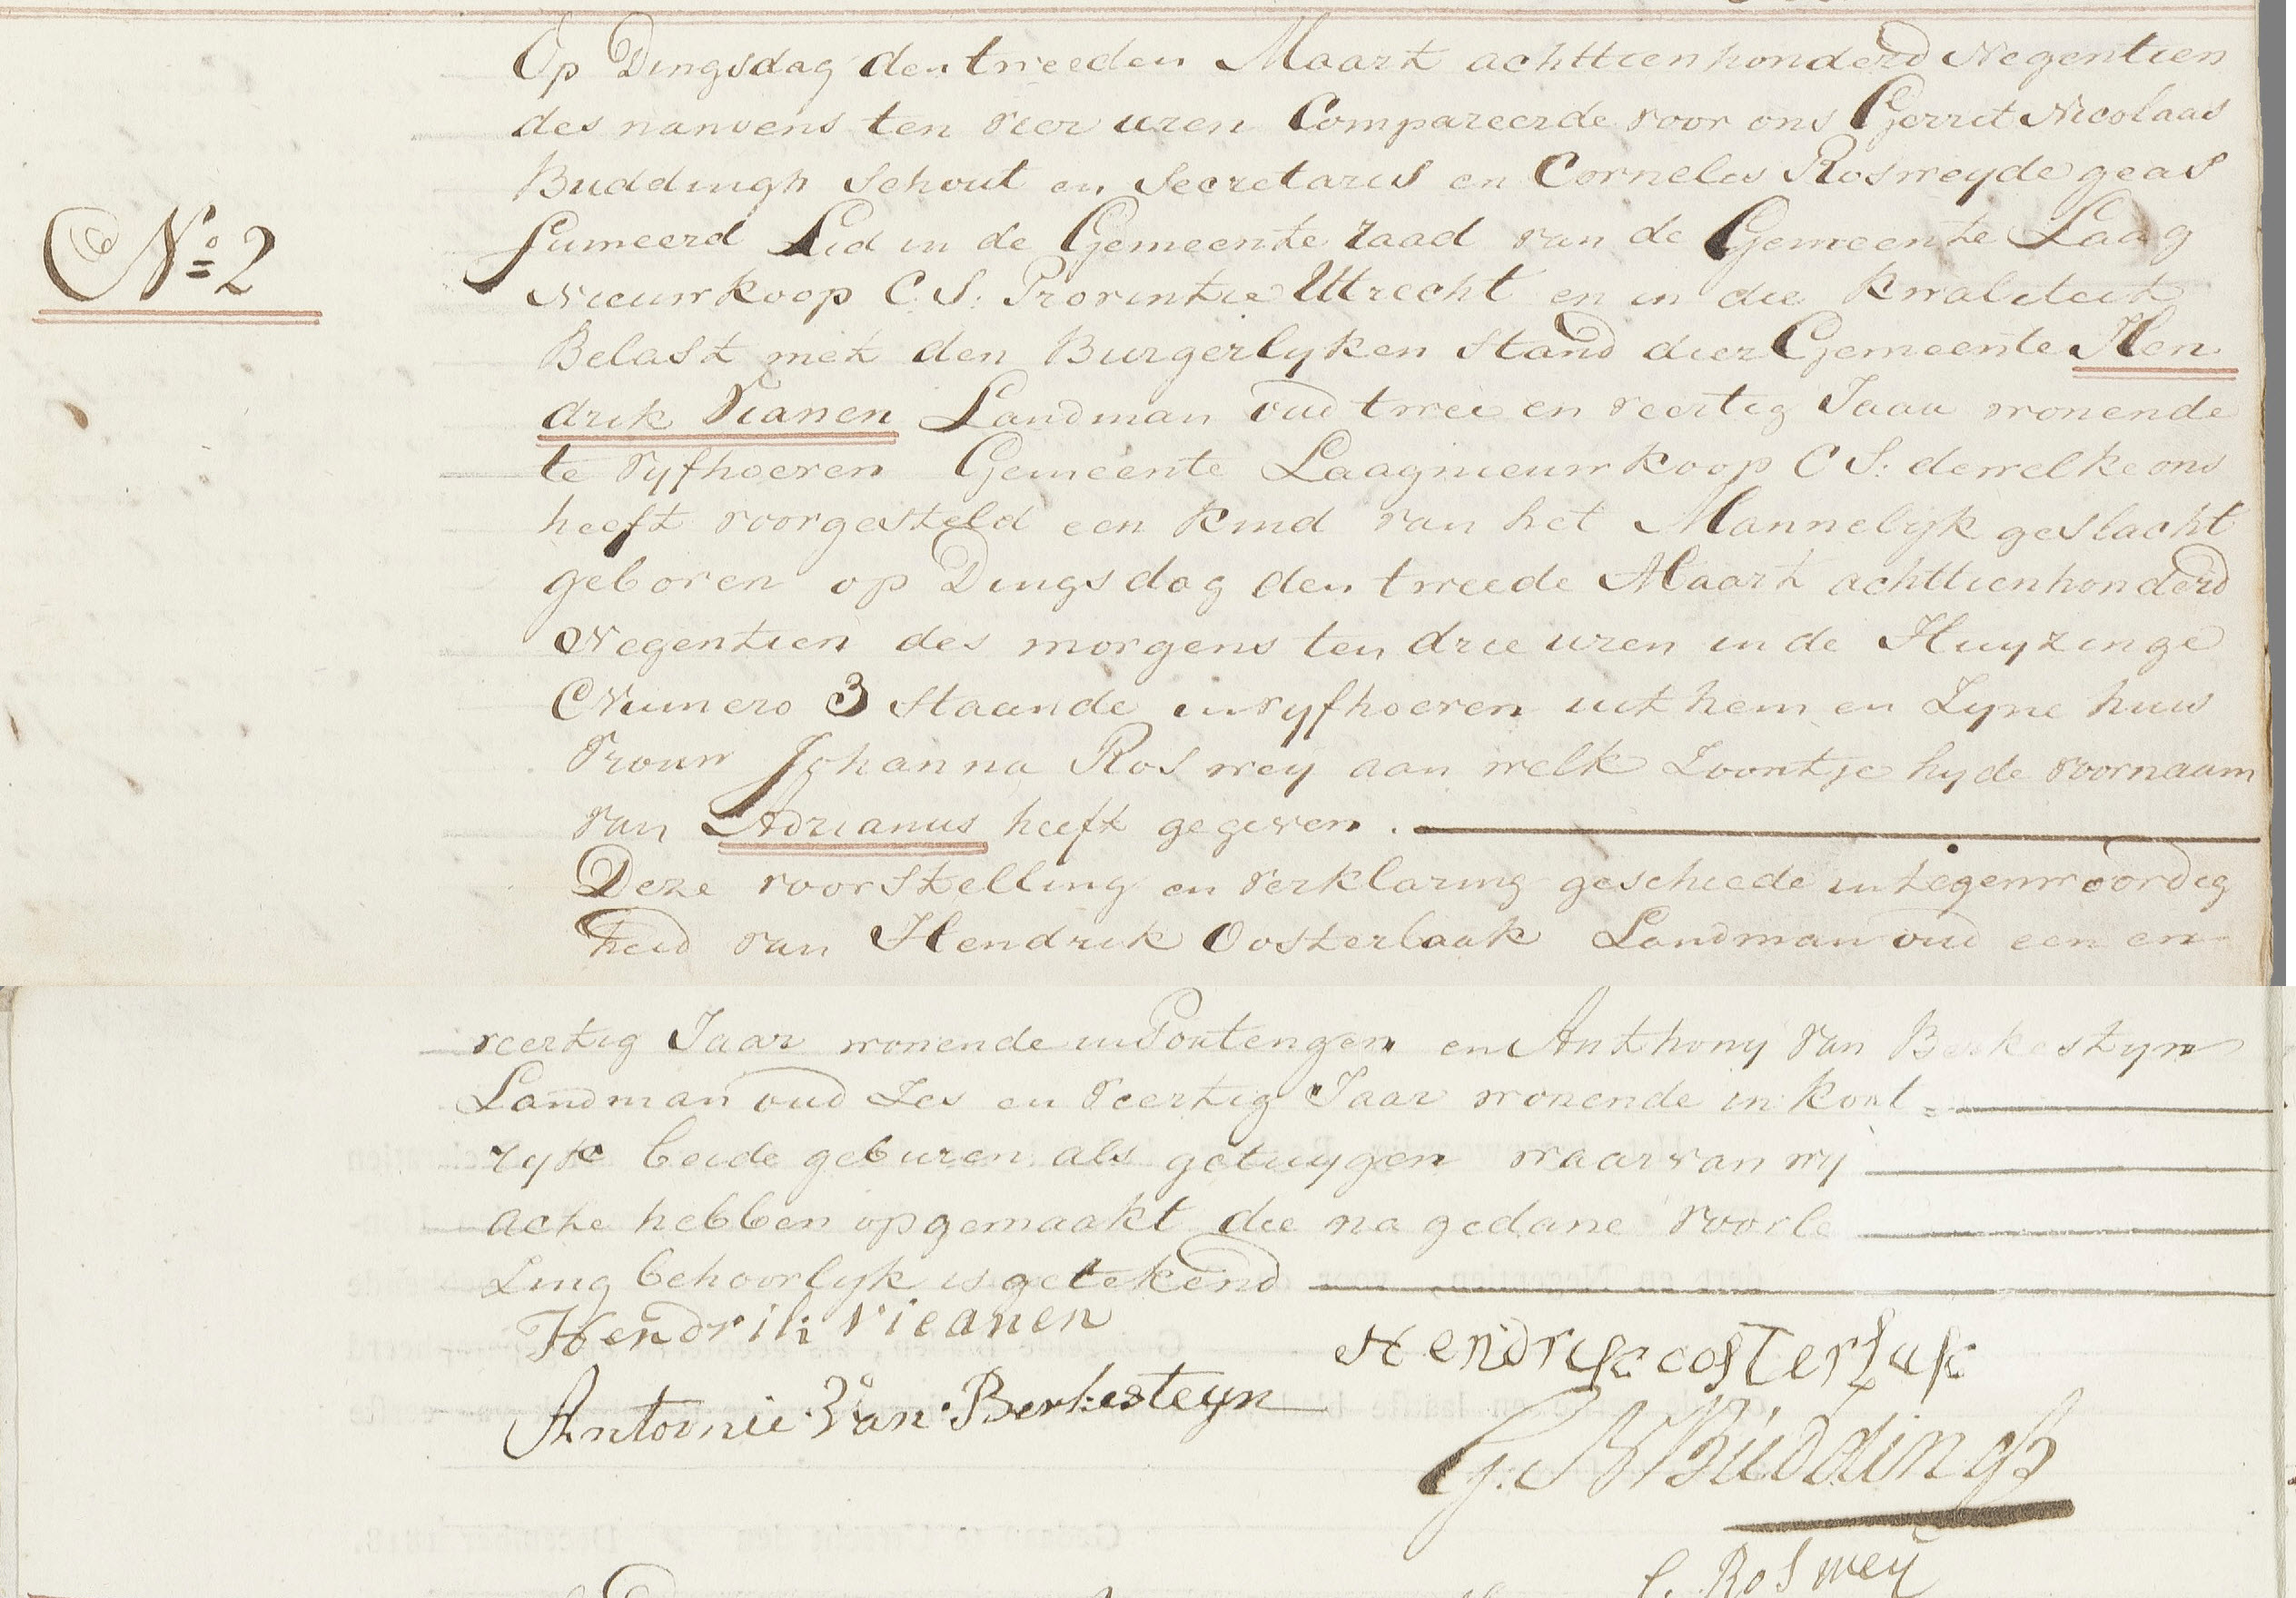 Op Dingsdag den tweeden Maart achttienhonderd Negentien
des navvens ten vier uren Compareerde voor ons Gerrit Nicolaas
Buddingh Schout en Secretaris en Cornelis Rosweyde geas
Nº 2
sumeerd Lid in de Gemeente raad van de Gemeente Laag
Nieuwkoop C.S: Provintie Uttrecht en in die kwaliteit
Belast met den Burgerlyken stand dier Gemeente Hen
drik Vianen Landman oud twee en veertig Jaar wonende
te vyfhoeven Gemeente Laagnieuwkoop C S: dewelke ons
heeft voorgesteld een kind van het Mannelyk geslacht
geboren op Dingsdag den tweede Maart achttienhonderd
Negentien des morgens ten drie uren in de Huyzinge
Numero 3 staande in vyfhoeven uit hem en Zyne huis
vrouw Johanna Roswey aan welk Zoontje hy de voornaam
van Adrianus heeft gegeven.
Deze voorstelling en verklaring geschiede in tegenwoordig
heid van Hendrik Oosterlaak Landman oud een en
veertig Jaar wonende in Portengen en Anthony van Berkestyn
Landman oud Zes en veertig Jaar wonende in kort=
ryk beide geburen als getuygen waarvan wy
acte hebben opgemaakt die na gedane voorle
Zing behoorlyk is getekend
Hendrik vieanen
Hendryk oosterlak
Antoonie Van Berkesteyn
G. N Buddingh
C. Roswey